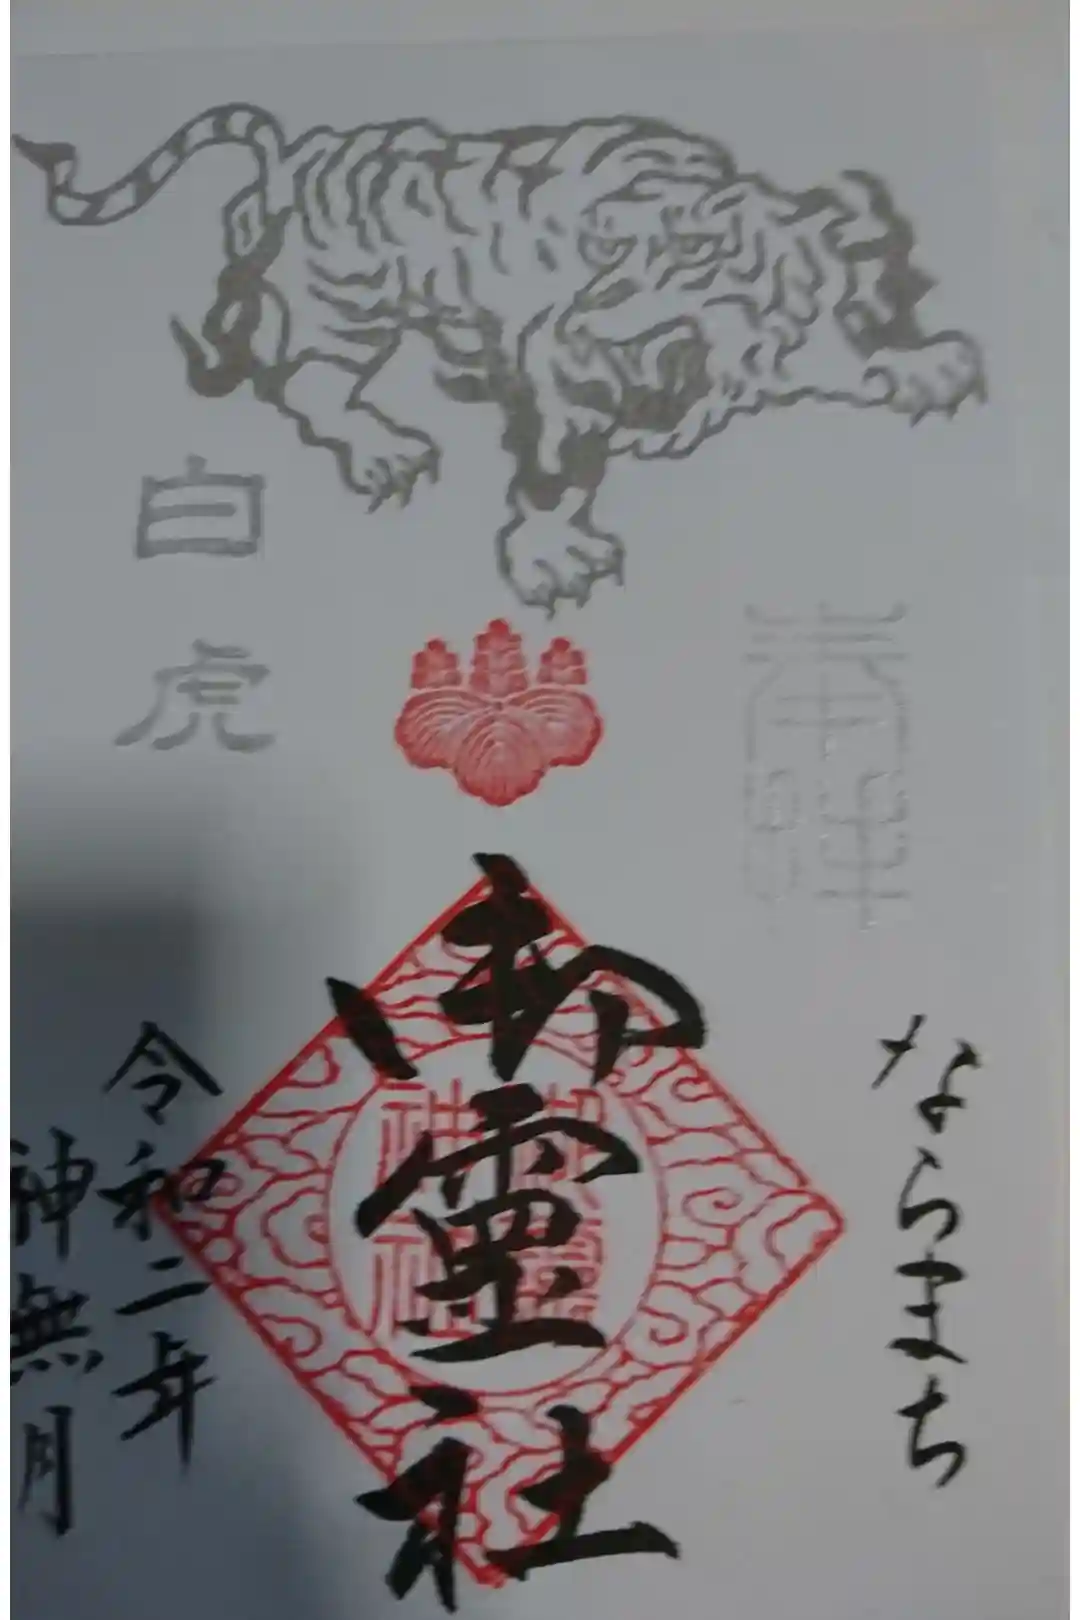 奉拝
ならまち
御霊社
御霊
神社
白虎
令和二年
神無月